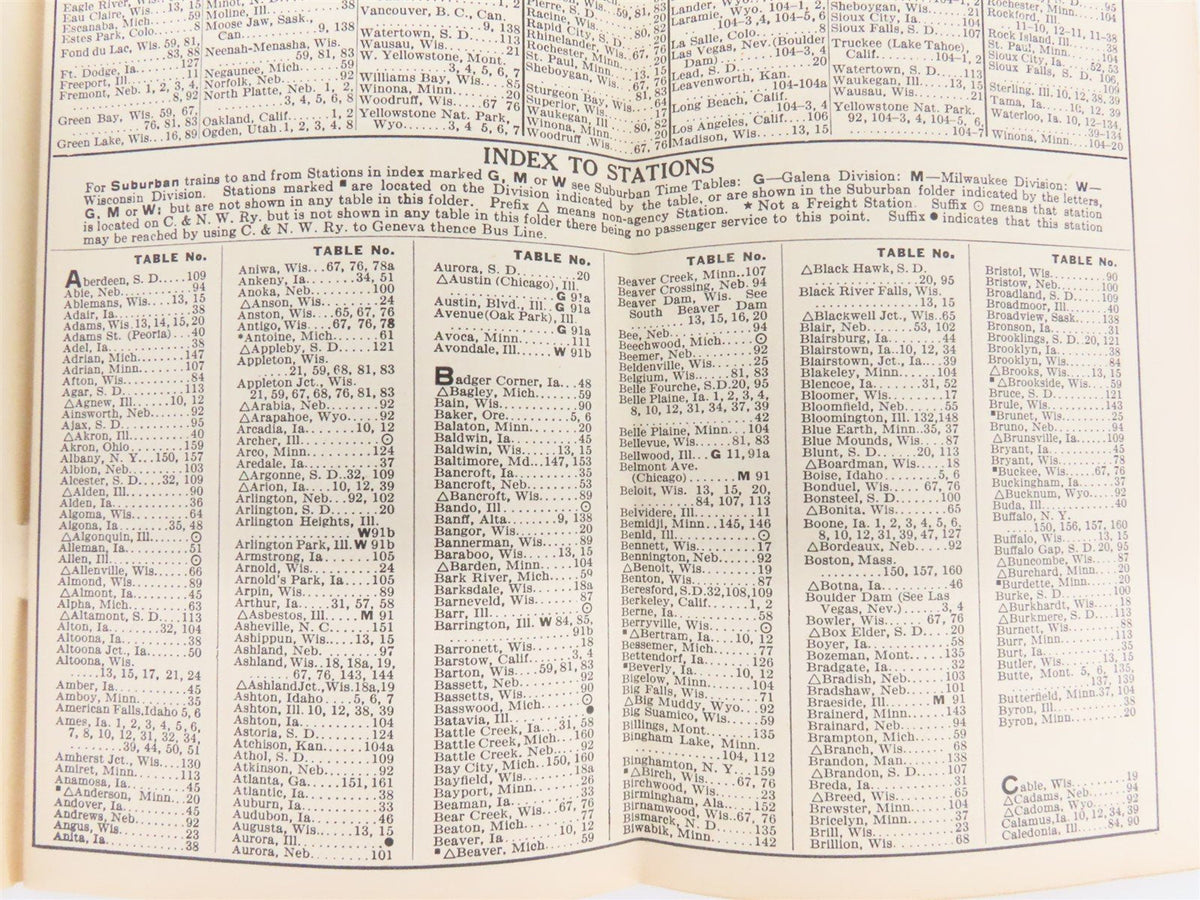 Eagle River, Wis.
Eau Claire, Wis. 13, 15
Escanaba, Mich. 59
Estes Park, Colo. 8
Fond du Lac, Wis. 59, 81,
83, 88
Ft. Dodge, Ia. 127
Freeport, Ill. 11
Fremont, Neb. 1, 2, 3, 4,
8, 92
Green Bay, Wis. 59, 67,
76, 81, 83
Green Lake, Wis. 16, 89
Moline, Ill. 38
Moose Jaw, Sask.,
Can. 9, 138
Neenah-Menasha, Wis.
59, 81, 83
Negaunee, Mich. 59
Norfolk, Neb. 92
North Platte, Neb. 1, 2,
3, 4, 5, 6, 8
Oakland, Calif. 1, 2
Ogden, Utah 1, 2, 3, 4, 8
Vancouver, B. C., Can.
9, 138
Watertown, S. D. 113
Wausau, Wis. 21
W. Yellowstone, Mont.
3, 4, 5, 6, 7
Williams Bay, Wis. 85
Winona, Minn. 20
Woodruff, Wis. 67 76
Yellowstone Nat. Park,
Wyo. 3, 4, 5, 6, 7
Pierre, S. D.
Racine, Wis. 59, 81, 83
Rapid City, S. D. 80, 82
Rhinelander, Wis. 67, 76
Rochester, Minn. 20
St. Paul, Minn. 13, 15
Sheboygan, Wis.
Sturgeon Bay, Wis. 64
Superior, Wis. 17
Waukegan, Ill. 80, 82
Winona, Minn. 20
Woodruff, Wis. 67, 76
Lander, Wyo. 104-1, 2,
Laramie, Wyo. 104-1, 2,
104-3, 4, 104-5, 6
La Salle, Colo. 8
Las Vegas, Nev. (Boulder
Dam) 104-3, 4
Lead, S. D. 20
Leavenworth, Kan.
104-104a
Long Beach, Calif.
104-3, 4
Los Angeles, Calif. 106
Madison, Wis. 13, 15
Sheboygan, Wis.
Sioux City, Ia. 104
Sioux Falls, S. D. 107
Truckee (Lake Tahoe),
Calif. 104-1, 2
Watertown, S. D. 113
Waukegan, Ill. 13, 15
Wausau, Wis. 21
Yellowstone Nat. Park.
92, 104-3, 4, 104-5, 6,
104-7
Rochester, Minn. 104
Rockford, Ill.
10, 12-11, 11-38
Rock Island, Ill. 38
St. Paul, Minn. 104
Sioux City, Ia. 52, 53
Sioux Falls, S. D. 106,
109
Sterling, Ill. 10, 12, 38, 39
Tama, Ia. 10, 12, 39
Waterloo, Ia. 10, 12-134,
39-134
Winona, Minn. 104-20
INDEX TO STATIONS
For Suburban trains to and from Stations in index marked G, M or W see Suburban Time Tables: G—Galena Division: M—Milwaukee Division: W—
Wisconsin Division. Stations marked ■ are located on the Division indicated by the table, or are shown in the Suburban folder indicated by the letters,
G, M or W; but are not shown in any table in this folder. Prefix △ means non-agency Station. ★ Not a Freight Station. Suffix ⊙ means that station
is located on C. & N. W. Ry. but is not shown in any table in this folder there being no passenger service to this point. Suffix ● indicates that this station
may be reached by using C. & N. W. Ry. to Geneva thence Bus Line.
TABLE No.
Aberdeen, S. D. 109
Able, Neb. 94
Ablemans, Wis. 13, 15
Adair, Ia. 38
Adams, Wis. 13, 14, 15, 20
Adams St. (Peoria) 40
Adel, Ia. 38
Adrian, Mich. 147
Adrian, Minn. 107
Afton, Wis. 84
Agar, S. D. 113
△Agnew, Ill. 10, 12
Ainsworth, Neb. 92
Ajax, S. D. 95
△Akron, Ill. 40
Akron, Ohio 159
Albany, N. Y. 150, 157
Albion, Neb. 103
Alcester, S. D. 32, 109
△Alden, Ill. 90
Alden, Ia. 36
Algoma, Wis. 64
Algona, Ia. 35, 48
△Algonquin, Ill. ⊙
Alleman, Ia. 51
Allen, Ill. ⊙
△Allenville, Wis. 66
Almond, Wis. 89
△Almont, Ia. 45
Alpha, Mich. 63
△Altamont, S. D. 113
Alton, Ia. 32, 104
Altoona, Ia. 38
Altoona Jct., Ia. 50
Altoona, Wis.
13, 15, 17, 21, 24
Amber, Ia. 45
Amboy, Minn. 35
American Falls, Idaho 5, 6
Ames, Ia. 1, 2, 3, 4, 5, 6,
7, 8, 10, 12, 31, 32, 34,
39, 44, 50, 51
Amherst Jct., Wis. 130
Amiret, Minn. 113
Anamosa, Ia. 45
■△Anderson, Minn. 20
Andover, Ia. 45
Andrews, Neb. 92
Angus, Wis. 23
Anita, Ia. 38
TABLE No.
Aniwa, Wis. 67, 76, 78a
Ankeny, Ia. 34, 51
Anoka, Neb. 100
△Anson, Wis. 24
Anston, Wis. 65, 67, 76
Antigo, Wis. 67, 76, 78
★Antoine, Mich. 61
△Appleby, S. D. 121
Appleton, Wis.
21, 59, 68, 81, 83
Appleton Jct., Wis.
21, 59, 67, 68, 76, 81, 83
△Arabia, Neb. 92
△Arapahe, Wyo. 92
Arcadia, Ia. 10, 12
Archer, Ill. ⊙
Arco, Minn. 124
Aredale, Ia. 37
△Argonne, S. D. 32, 109
△Arion, Ia. 10, 12, 39
Arlington, Neb. 92, 102
Arlington, S. D. 20
Arlington Heights, Ill.
W 91b
Arlington Park, Ill. W 91b
Armstrong, Ia. 105
Arnold, Wis. 24
Arnold's Park, Ia. 105
Arpin, Wis. 89
Arthur, Ia. 31, 57, 58
△Asbestos, Ill. M 91
Asheville, N. C. 151
Ashippun, Wis. 13, 15
Ashland, Neb. 97
Ashland, Wis. 18, 18a, 19,
67, 76, 143, 144
△Ashland Jct., Wis. 18a, 19
Ashton, Idaho 5, 6, 7
Ashton, Ill. 10, 12, 38, 39
Ashton, Ia. 104
Astoria, S. D. 124
Atchison, Kan. 104a
Athol, S. D. 109
Atkinson, Neb. 92
Atlanta, Ga. 151, 161
Atlantic, Ia. 38
Auburn, Ia. 33
Audubon, Ia. 46
Augusta, Wis. 13, 15
Aurora, Ill. ●
Aurora, Neb. 101
TABLE No.
Aurora, S. D. 20
△Austin (Chicago), Ill.
G 91a
Austin, Blvd., Ill. G 91a
Avenue (Oak Park), Ill
G 91a
Avoca, Minn. 111
Avondale, Ill. W 91b
Badger Corner, Ia. 48
△Bagley, Mich. 59
Bain, Wis. 90
Baker, Ore. 5, 6
Balaton, Minn. 20
Baldwin, Ia. 45
Baldwin, Wis. 13, 15
Baltimore, Md. 147, 153
Bancroft, Ia. 35
Bancroft, Neb. 53
△Bancroft, Wis. 89
Bando, Ill. ⊙
Banff, Alta. 9, 138
Bangor, Wis. 20
Bannerman, Wis. 89
Baraboo, Wis. 13, 15
△Barden, Minn. 104
Bark River, Mich. 59
Barksdale, Wis. 18a
Barneveld, Wis. 87
Barr, Ill. ⊙
Barrington, Ill. W 84, 85,
91b
Barronett, Wis. 18
Barstow, Calif. 3, 4
Barton, Wis. 59, 81, 83
Bassett, Neb. 92
Bassetts, Wis. 90
Basswood, Mich. ⊙
Batavia, Ill. ●
Battle Creek, Ia. 31, 58
Battle Creek, Mich. 160
Battle Creek, Neb. 92
Bay City, Mich. 150, 160
Bayfield, Wis. 18a
Bayport, Minn. 26
Beaman, Ia. 33
Bear Creek, Wis. 67, 76
Beaton, Mich. 77
Beaver, Ia. 10, 12
■△Beaver, Mich. 59
TABLE No.
Beaver Creek, Minn. 107
Beaver Crossing, Neb. 94
Beaver Dam, Wis. See
South Beaver Dam
13, 15, 16, 20
Bee, Neb. 94
Beechwood, Mich. ⊙
Beemer, Neb. 92
Beldenville, Wis. 25
Belgium, Wis. 81, 83
Belle Fourche, S.D. 20, 95
Belle Plaine, Ia. 1, 2, 3, 4,
8, 10, 12, 31, 34, 37, 39
42
Belle Plaine, Minn. 104
Bellevue, Wis. 81, 83
Bellwood, Ill. G 11, 91a
Belmont Ave.
(Chicago) M 91
Beloit, Wis. 13, 15, 20,
84, 107, 113
Belvidere, Ill. 11
Bemidji, Minn. 145, 146
Benld, Ill. ⊙
Bennett, Wis. 17
Bennington, Neb. 92
△Benoit, Wis. 19
Benton, Wis. 87
Beresford, S.D. 32, 108, 109
Berkeley, Calif. 1, 2
Berne, Ia. 58
Berryville, Wis. ⊙
■△Bertram, Ia. 10, 12
Bessemer, Mich. 77
Bettendorf, Ia. 126
■Beverly, Ia. 10, 12
Bigelow, Minn. 104
Big Falls, Wis. 71
△Big Muddy, Wyo. 92
Big Suamico, Wis. 59
Billings, Mont. 135
Bingham Lake, Minn.
104, 112
Binghamton, N. Y. 159
■△Birch, Wis. 67, 76
Birchwood, Wis. 23
Birmingham, Ala. 152
Birnamwood, Wis. 67, 76
Bismarck, N. D. 135
Biwabik, Minn. 142
TABLE No.
△Black Hawk, S. D.
20, 95
Black River Falls, Wis.
13, 15
△Blackwell Jct., Wis. 65
Blair, Neb. 53, 102
Blairsburg, Ia. 44
Blairstown, Ia. 10, 12, 34
Blairstown, Jct., Ia. 39
Blakeley, Minn. 104
Blencoe, Ia. 31, 52
Bloomer, Wis. 17
Bloomfield, Neb. 55
Bloomington, Ill. 132, 148
Blue Earth, Minn. 35, 37
Blue Mounds, Wis. 87
Blunt, S. D. 20, 113
△Boardman, Wis. 18
Boise, Idaho 5, 6
Bonduel, Wis. 67, 76
Bonsteel, S. D. 100
△Bonita, Wis. 65
Boone, Ia. 1, 2, 3, 4, 5, 6,
8, 10, 12, 31, 39, 47, 127
△Bordeaux, Neb. 92
Boston, Mass.
150, 157, 160
△Botna, Ia. 46
Boulder Dam (See Las
Vegas, Nev.) 3, 4
Bowler, Wis. 67, 76
△Box Elder, S. D. 20
Boyer, Ia. 58
Bozeman, Mont. 135
Bradgate, Ia. 32
△Bradish, Neb. 103
Bradshaw, Neb. 101
Braeside, Ill. M 91
Brainerd, Minn. 143
Brainard, Neb. 94
Brampton, Mich. 59
△Branch, Wis. 68
Brandon, Man. 138
△Brandon, S. D. 107
Breda, Ia. 31
△Breed, Wis. 65
Brewster, Minn. 104
Bricelyn, Minn. 37
Brill, Wis. 23
Brillion, Wis. 68
TABLE No.
Bristol, Wis. 90
Bristow, Neb. 100
Broadland, S. D. 109
Broadmoor, Ill. 40
Broadview, Sask. 138
Bronson, Ia. 31
Brookings, S. D. 20, 121
Brooklyn, Ia. 38
Brooklyn, Wis. 84
△Brooks, Wis. 13, 15
■△Brookside, Wis. 59
Bruce, S. D. 121
Brule, Wis. 143
■Brunet, Wis. 25
Bruno, Neb. 94
△Brunsville, Ia. 109
Bryant, Ia. 45
Bryant, Wis. 78
■Buckee, Wis. 67, 76
Buckingham, Ia. 37
△Bucknum, Wyo. 92
Buda, Ill. 40
Buffalo, N. Y.
150, 156, 157, 160
Buffalo, Wis. 13, 15
Buffalo Gap, S. D. 20, 95
△Buncombe, Wis. 87
△Burchard, Minn. 20
■Burdette, Minn. 20
Burke, S. D. 100
△Burkhardt, Wis. 18
△Burkmere, S. D. 113
Burnett, Wis. 88
Burr, Minn. 113
Burt, Ia. 35
Butler, Wis. 13, 15
Butte, Mont. 5, 6, 135,
137, 139
Butterfield, Minn. 37, 104
Byron, Ill. 38
Byron, Minn. 20
Cable, Wis. 19
△Cadams, Neb. 94
△Cadoma, Wyo. 92
Calamus, Ia. 10, 12, 34, 39
Caledonia, Ill. 84, 90